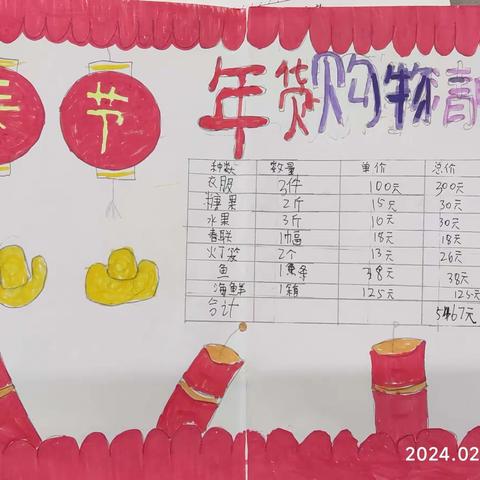 春节
年货购物清
种类 数量 单价 总价
衣服 3件 100元 300元
糖果 2斤 15元 30元
水果 3斤 10元 30元
春联 1幅 18元 18元
灯笼 2个 13元 26元
鱼 1条 38元 38元
海鲜 1箱 125元 125元
合计 567元
2024.02